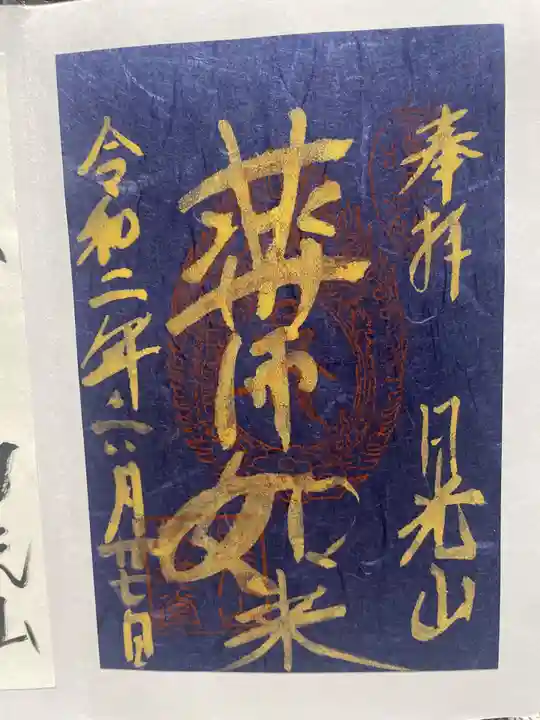 奉拝 日光山
薬师如来
令和二年六月廿七日
光山